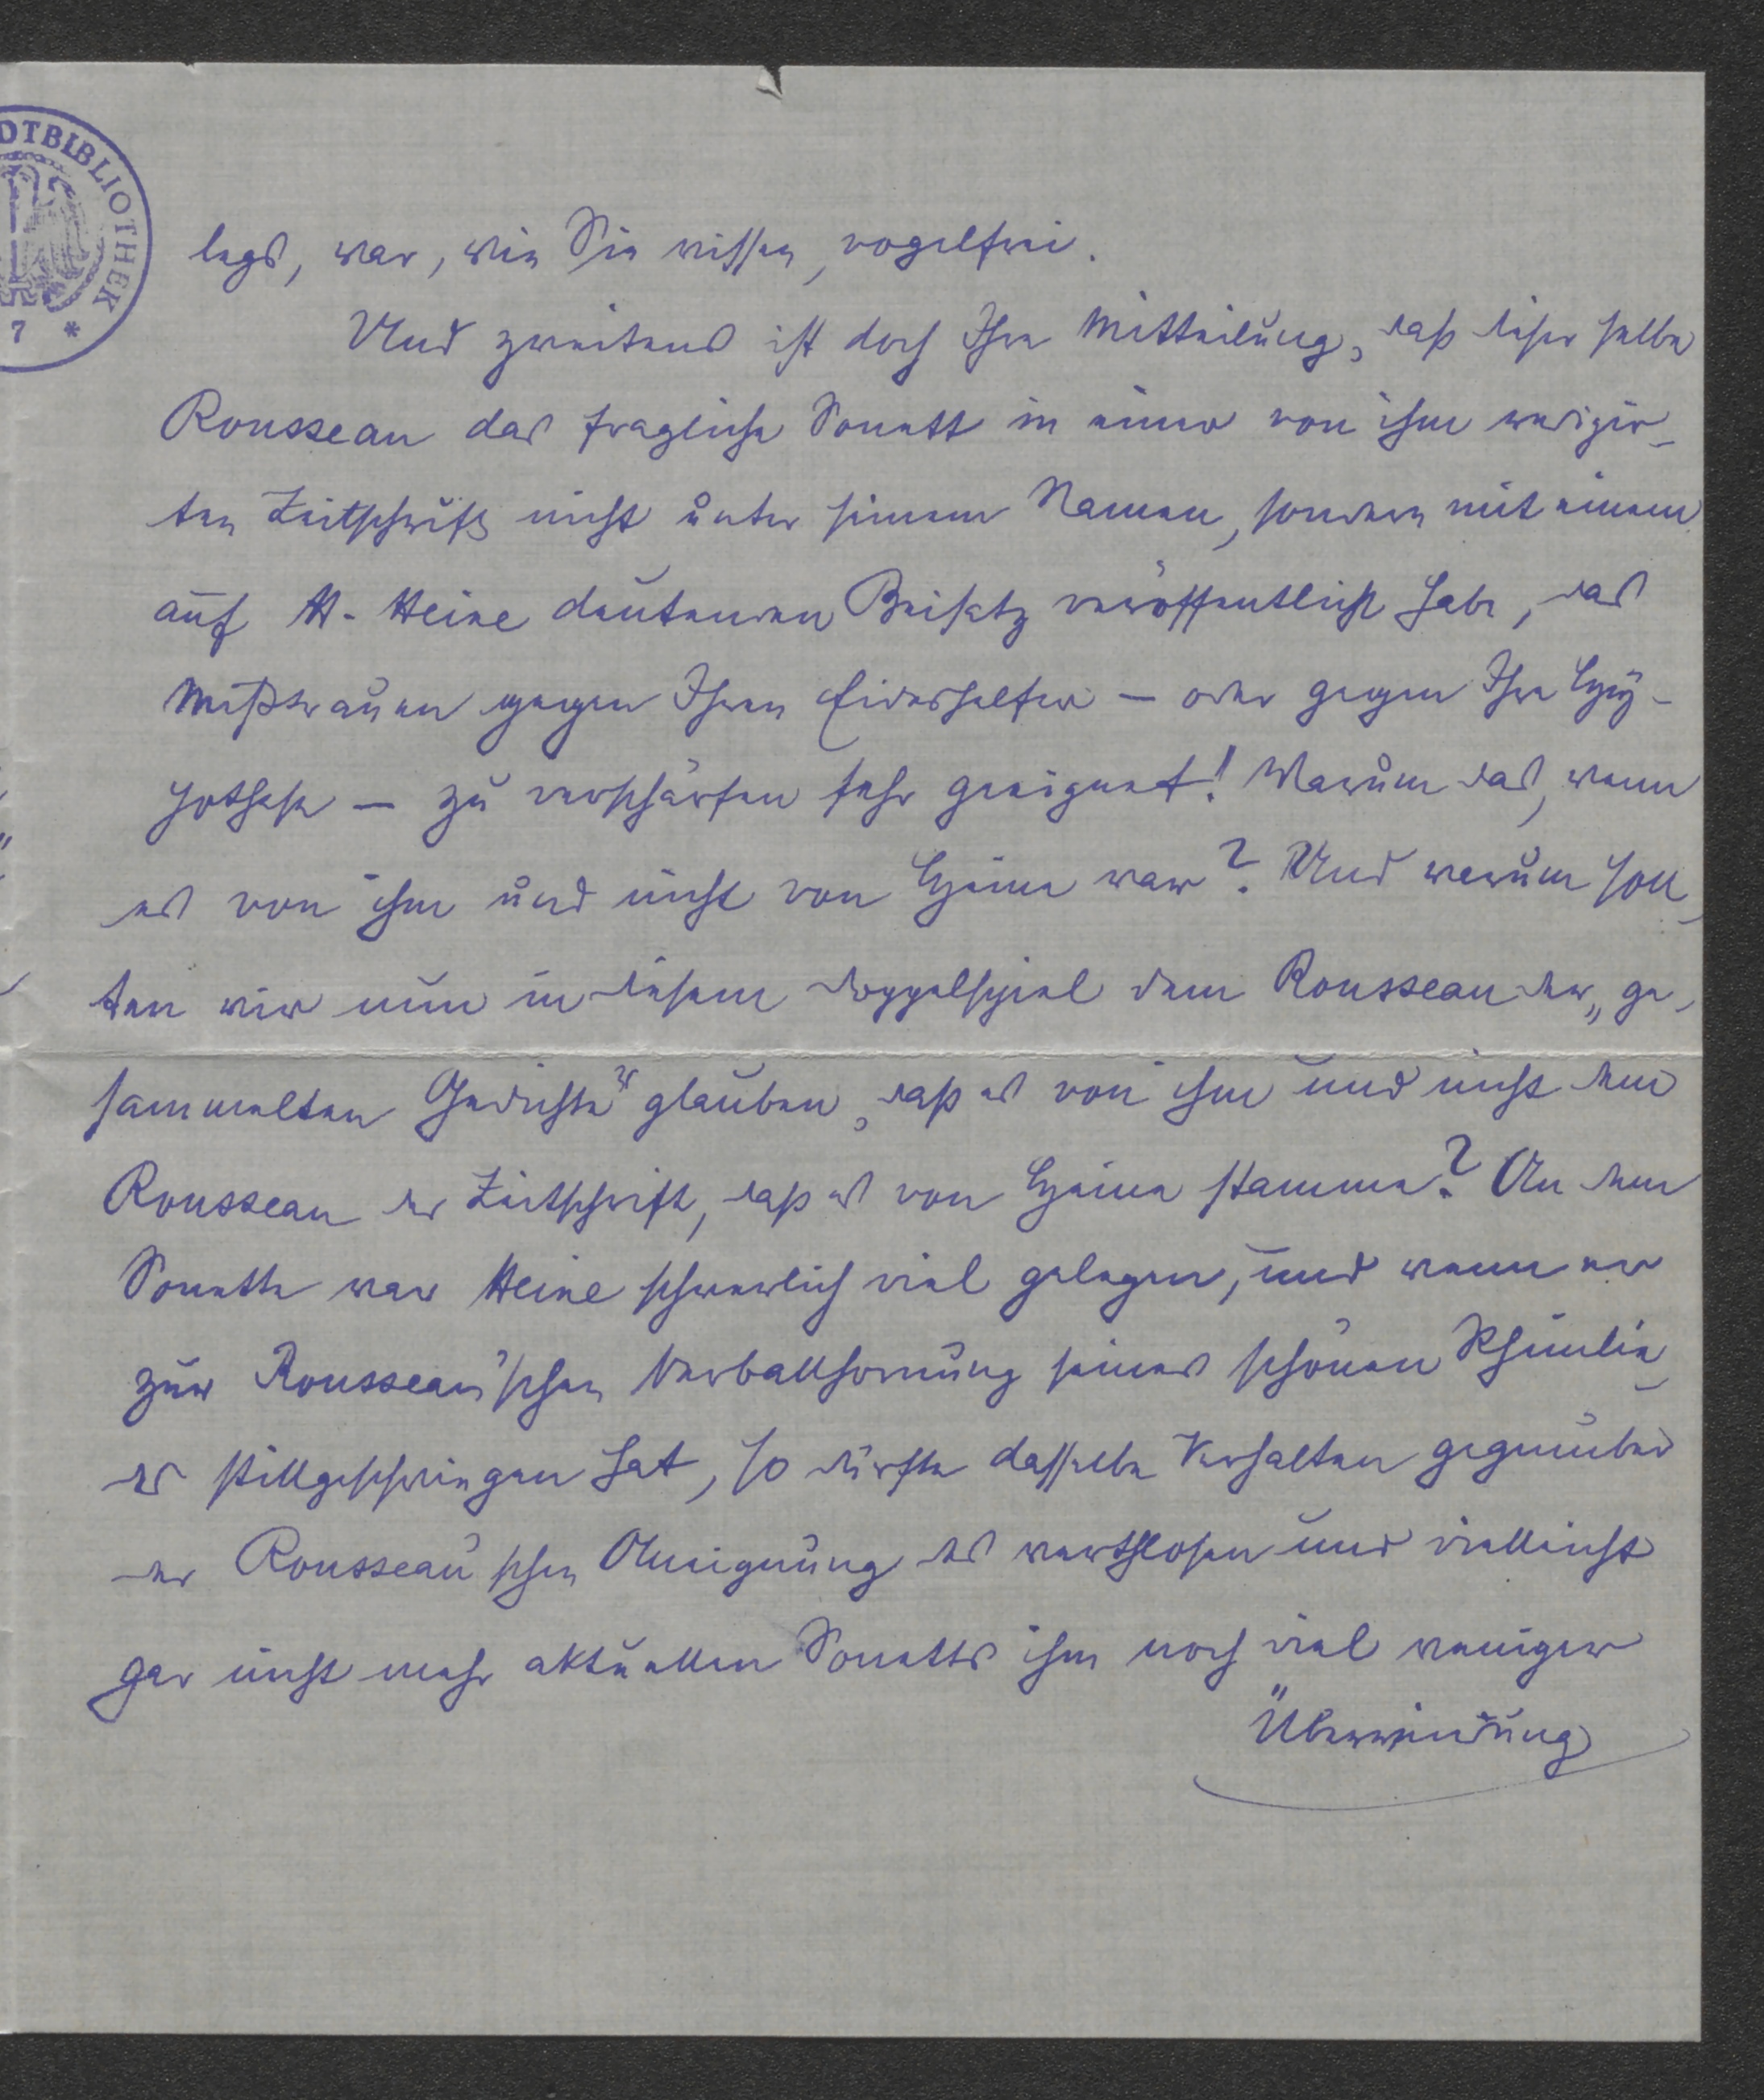 DTBIBLIOTHEK
7 *
legs, war, wie Sie wissen, vogelfrei.
Und zweitens ist doch Ihre Mitteilung, daß dieser selbe
Rousseau das fragliche Sonett in einer von ihm redigir-
ten Zeitschrift nicht unter seinem Namen, sondern mit einem
auf H. Heine deutenden Beisatz veröffentlicht habe, das
Mißtrauen gegen Ihren Eideshelfer – oder gegen Ihre Hy-
pothese – zu verschärfen sehr geeignet! Warum das, wenn
es von ihm und nicht von Heine war? Und warum soll-
ten wir nun in diesem Doppelspiel dem Rousseau der „ge-
sammelten Gedichte" glauben, daß es von ihm und nicht dem
Rousseau der Zeitschrift, daß es von Heine stamme? An dem
Sonette war Heine schwerlich viel gelegen, und wenn er
zur Rousseau'schen Verballhornung seines schönen Rheinlie-
des stillgeschwiegen hat, so dürfte dasselbe Verhalten gegenüber
der Rousseau'schen Aneignung des werthlosen und vielleicht
gar nicht mehr aktuellen Sonetts ihm noch viel weniger
Überwindung